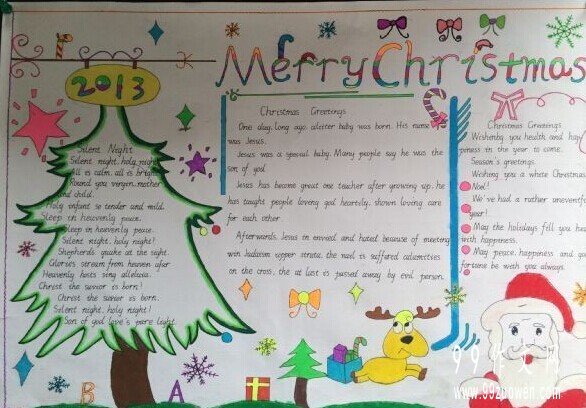 Merry Christmas
2013
Silent Night
Silent night, holy night
All is calm, all is bright
Round you virgin mother
and child.
Holy infant so tender and mild.
Sleep in heavenly peace.
Sleep in heavenly peace.
Silent night, holy night!
Shepherds quake at the sight.
Glories stream from heaven afar
Heavenly hosts sing alleluia.
Christ the savior is born!
Christ the savior is born.
Silent night, holy night!
Son of god love's pure light.
B A
Christmas Greetings
One day, long ago, a baby was born. His name
was Jesus.
Jesus was a special baby. Many people say he was the
son of god.
Jesus has become great one teacher after growing up, he
has taught people loving god heartily, shown loving care
for each other.
Afterwards, Jesus in envied and hated because of meeting
with Judaism upper strata, the nail is suffered calamities
on the cross, the at last is passed away by evil person.
Christmas Greetings
Wishing you health and hap
piness in the year to come.
Season's greetings.
Wishing you a white Christmas
Noel!
We've had a rather uneventful
year!
May the holidays fell you hea
with happiness.
May peace, happiness and go
fortune be with you always.
99作文网
www.99zuowen.com